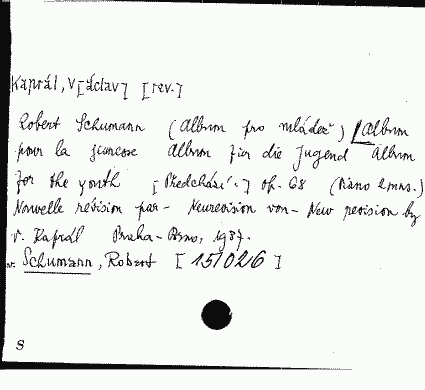 Kaprál, V[áclav] [rev.]
Robert Schumann (Album pro mládež) [Album
pour la jeunesse Album für die Jugend Album
for the youth [Předchází.] op. 68 (Piano 2 mns.)
Nouvelle révision par- Neurevision von- New revision by
V. Kaprál Praha-Brno, 1937.
Schumann, Robert [15/026]
S